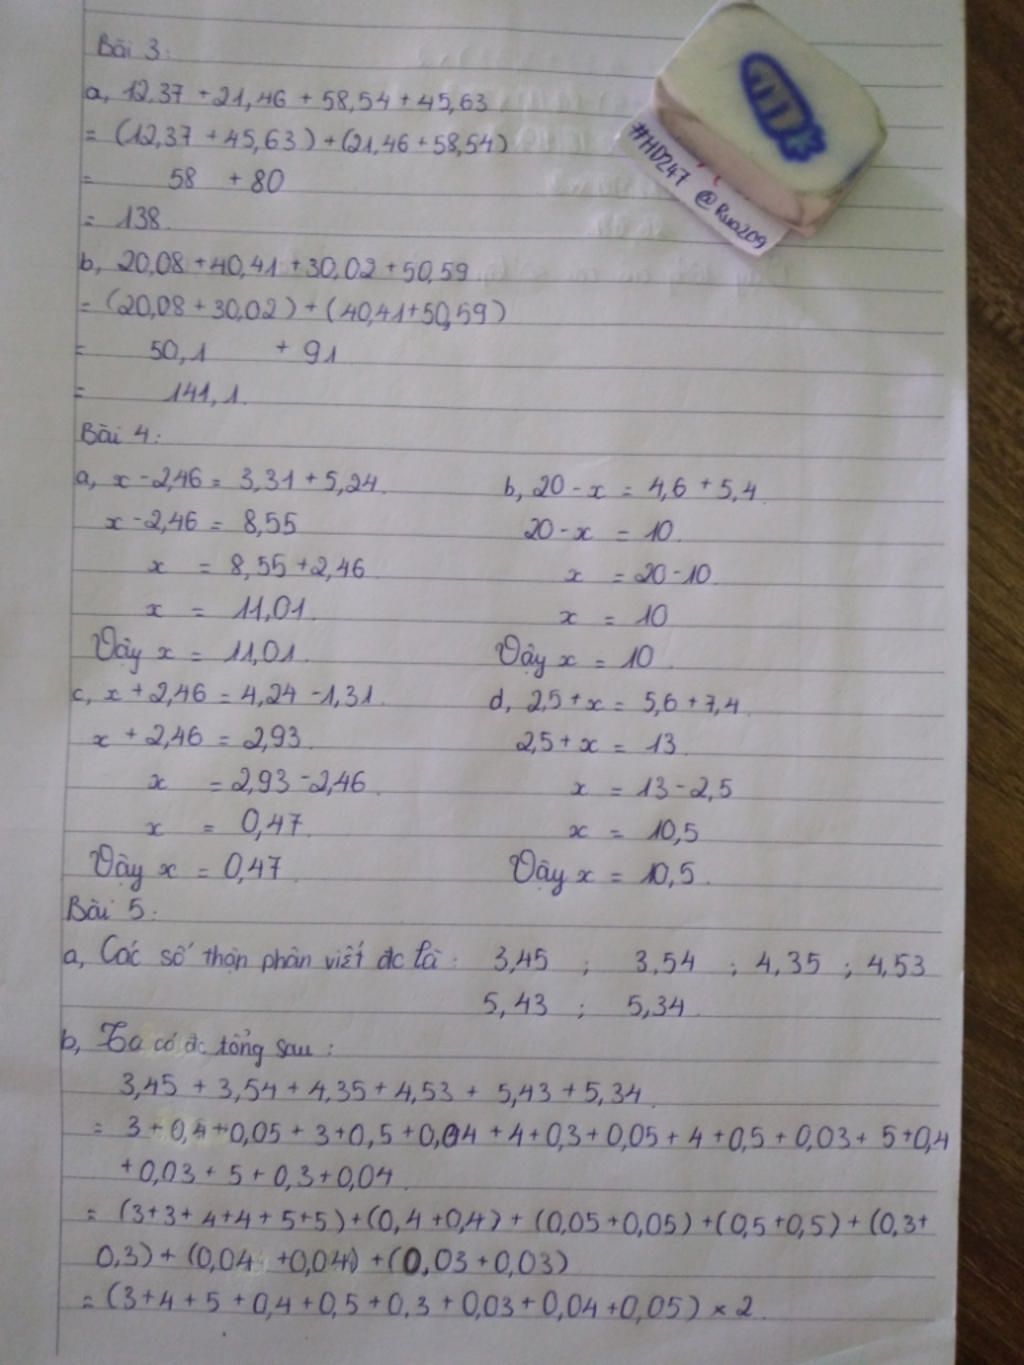 Bài 3:
a, 12,37 + 21,46 + 58,54 + 45,63
= (12,37 + 45,63) + (21,46 + 58,54)
= 58 + 80
= 138.
b, 20,08 + 40,41 + 30,02 + 50,59
= (20,08 + 30,02) + (40,41 + 50,59)
= 50,1 + 91
= 141,1.
Bài 4:
a, x - 2,46 = 3,31 + 5,24.
x - 2,46 = 8,55
x = 8,55 + 2,46
x = 11,01.
Vậy x = 11,01.
b, 20 - x = 4,6 + 5,4.
20 - x = 10.
x = 20 - 10.
x = 10
Vậy x = 10.
c, x + 2,46 = 4,24 - 1,31.
x + 2,46 = 2,93.
x = 2,93 - 2,46.
x = 0,47.
Vậy x = 0,47.
d, 2,5 + x = 5,6 + 7,4.
2,5 + x = 13.
x = 13 - 2,5
x = 10,5
Vậy x = 10,5.
Bài 5:
a, Các số thận phân viết đc là: 3,45 ; 3,54 ; 4,35 ; 4,53
5,43 ; 5,34.
b, Ta có đc tổng sau:
3,45 + 3,54 + 4,35 + 4,53 + 5,43 + 5,34.
= 3 + 0,4 + 0,05 + 3 + 0,5 + 0,04 + 4 + 0,3 + 0,05 + 4 + 0,5 + 0,03 + 5 + 0,4
+ 0,03 + 5 + 0,3 + 0,04.
= (3 + 3 + 4 + 4 + 5 + 5) + (0,4 + 0,4) + (0,05 + 0,05) + (0,5 + 0,5) + (0,3 +
0,3) + (0,04 + 0,04) + (0,03 + 0,03)
= (3 + 4 + 5 + 0,4 + 0,5 + 0,3 + 0,03 + 0,04 + 0,05) × 2.
#HD247
@Rua209